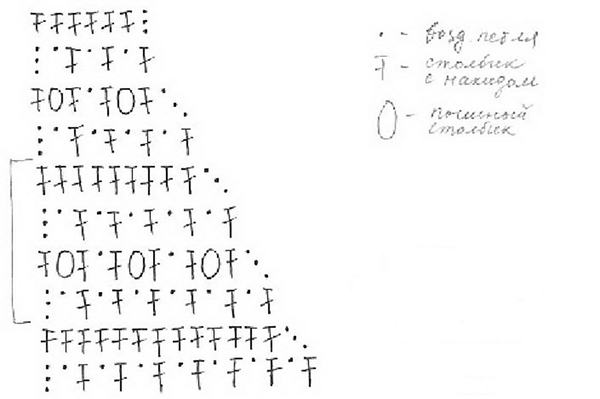 • - возд. петля
Ŧ - столбик
с накидом
O - пышный
столбик